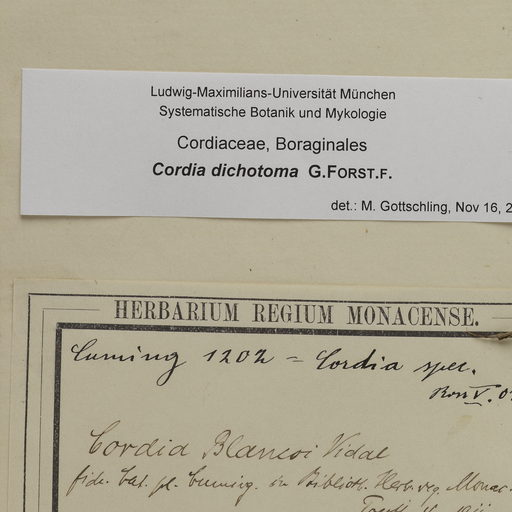 Ludwig-Maximilians-Universität München
Systematische Botanik und Mykologie
Cordiaceae, Boraginales
Cordia dichotoma G.FORST.F.
det.: M. Gottschling, Nov 16, 2
HERBARIUM REGIUM MONACENSE.
Cuming 1202 = Cordia spec.
Cordia Blancoi Vidal
fide Cat. pl. Cuming. in Biblioth. Herb. reg. Monac.